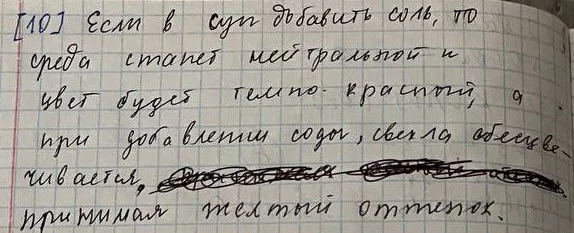 [10] Если в суп добавить соль, то
среда станет нейтральной и
цвет будет темно-красный, а
при добавлении соды, свекла обесцве-
чивается,
принимая желтый оттенок.